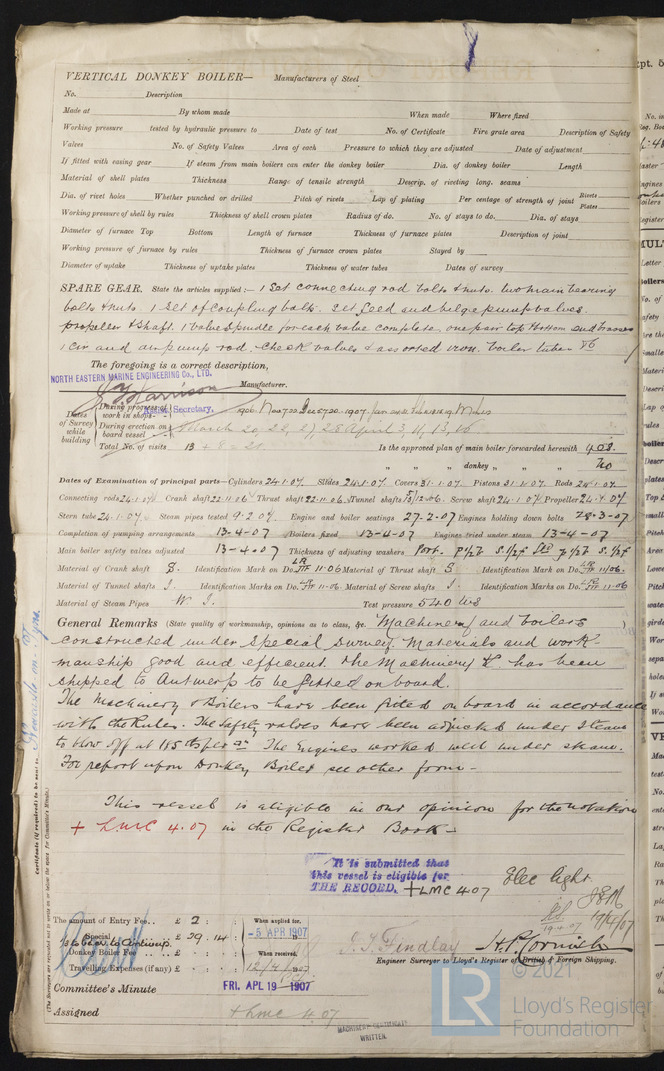 VERTICAL DONKEY BOILER— Manufacturers of Steel
No. Description
Made at By whom made When made Where fixed
Working pressure tested by hydraulic pressure to Date of test No. of Certificate Fire grate area Description of Safety
Valves No. of Safety Valves Area of each Pressure to which they are adjusted Date of adjustment
If fitted with easing gear If steam from main boilers can enter the donkey boiler Dia. of donkey boiler Length
Material of shell plates Thickness Range of tensile strength Descrip. of riveting long. seams
Dia. of rivet holes Whether punched or drilled Pitch of rivets Lap of plating Per centage of strength of joint Rivets Plates
Working pressure of shell by rules Thickness of shell crown plates Radius of do. No. of stays to do. Dia. of stays
Diameter of furnace Top Bottom Length of furnace Thickness of furnace plates Description of joint
Working pressure of furnace by rules Thickness of furnace crown plates Stayed by
Diameter of uptake Thickness of uptake plates Thickness of water tubes Dates of survey
SPARE GEAR. State the articles supplied:— 1 Set connecting rod bolts & nuts. two main bearing
bolts & nuts. 1 set of coupling bolts. set feed and bilge pump valves.
propeller & shaft. 1 valve spindle for each valve complete, one pair top & bottom end brasses
1 Cir and air pump rod. Check valves & assorted iron. boiler tubes 76
The foregoing is a correct description,
NORTH EASTERN MARINE ENGINEERING Co., LTD.
Harrison Manufacturer.
Secretary.
Dates of Survey while building
During progress of work in shops - - 1906. Nov 7 22 Dec 5 7 20. 1907. Jan
During erection on board vessel - - - March 20, 22, 27, 28 April 3, 11, 13, 16
Total No. of visits 13 + 8 = 21 Is the approved plan of main boiler forwarded herewith
" " " donkey " " " No
Dates of Examination of principal parts—Cylinders 24.1.07. Slides 24.1.07. Covers 31.1.07. Pistons 31.1.07. Rods 24.1.07.
Connecting rods 24.1.07. Crank shaft 22.11.06 Thrust shaft 22.11.06 Tunnel shafts Screw shaft 24.1.07 Propeller 24.1.07
Stern tube 24.1.07. Steam pipes tested 9.2.07. Engine and boiler seatings 27.2.07 Engines holding down bolts 28.3.07
Completion of pumping arrangements 13.4.07 Boilers fixed 13.4.07 Engines tried under steam 13.4.07
Main boiler safety valves adjusted 13.4.07 Thickness of adjusting washers Port.
Material of Crank shaft S. Identification Mark on Do. 11.06 Material of Thrust shaft S Identification Mark on Do. 11/06.
Material of Tunnel shafts I. Identification Marks on Do. 11.06 Material of Screw shafts I. Identification Marks on Do. 11.06
Material of Steam Pipes W. I. Test pressure 540 lbs
General Remarks (State quality of workmanship, opinions as to class, &c. Machinery and boilers
constructed under special survey. Materials and work-
manship good and efficient. The Machinery &c has been
shipped to Antwerp to be fitted on board.
The Machinery & Boilers have been fitted on board in accordance
with the Rules. The Safety valves have been adjusted under Steam
to blow off at 185 lbs per □". The Engines worked well under steam.
For report upon Donkey Boiler see other form—
This vessel is eligible in our opinion for the notation
+ LMC 4.07 in the Register Book—
It is submitted that
this vessel is eligible for
THE RECORD. + LMC 4.07 Elec light
19/4/07
19.4.07
Certificate (if required) to be sent to Newcastle on Tyne.
(The Surveyors are requested not to write on or below the space for Committee's Minute.)
The amount of Entry Fee . . £ 2 : : When applied for,
Special £ 29 . 14 : - 5 APR 1907
Donkey Boiler Fee £ : : When received,
Travelling Expenses (if any) £ : :
J. T. Findlay H. P. Cornish
Engineer Surveyor to Lloyd's Register of British & Foreign Shipping.
Committee's Minute FRI. APL 19 1907
Assigned + LMC 4.07
MACHINERY CERTIFICATE
WRITTEN.
© 2021
LR
Lloyd's Register
Foundation